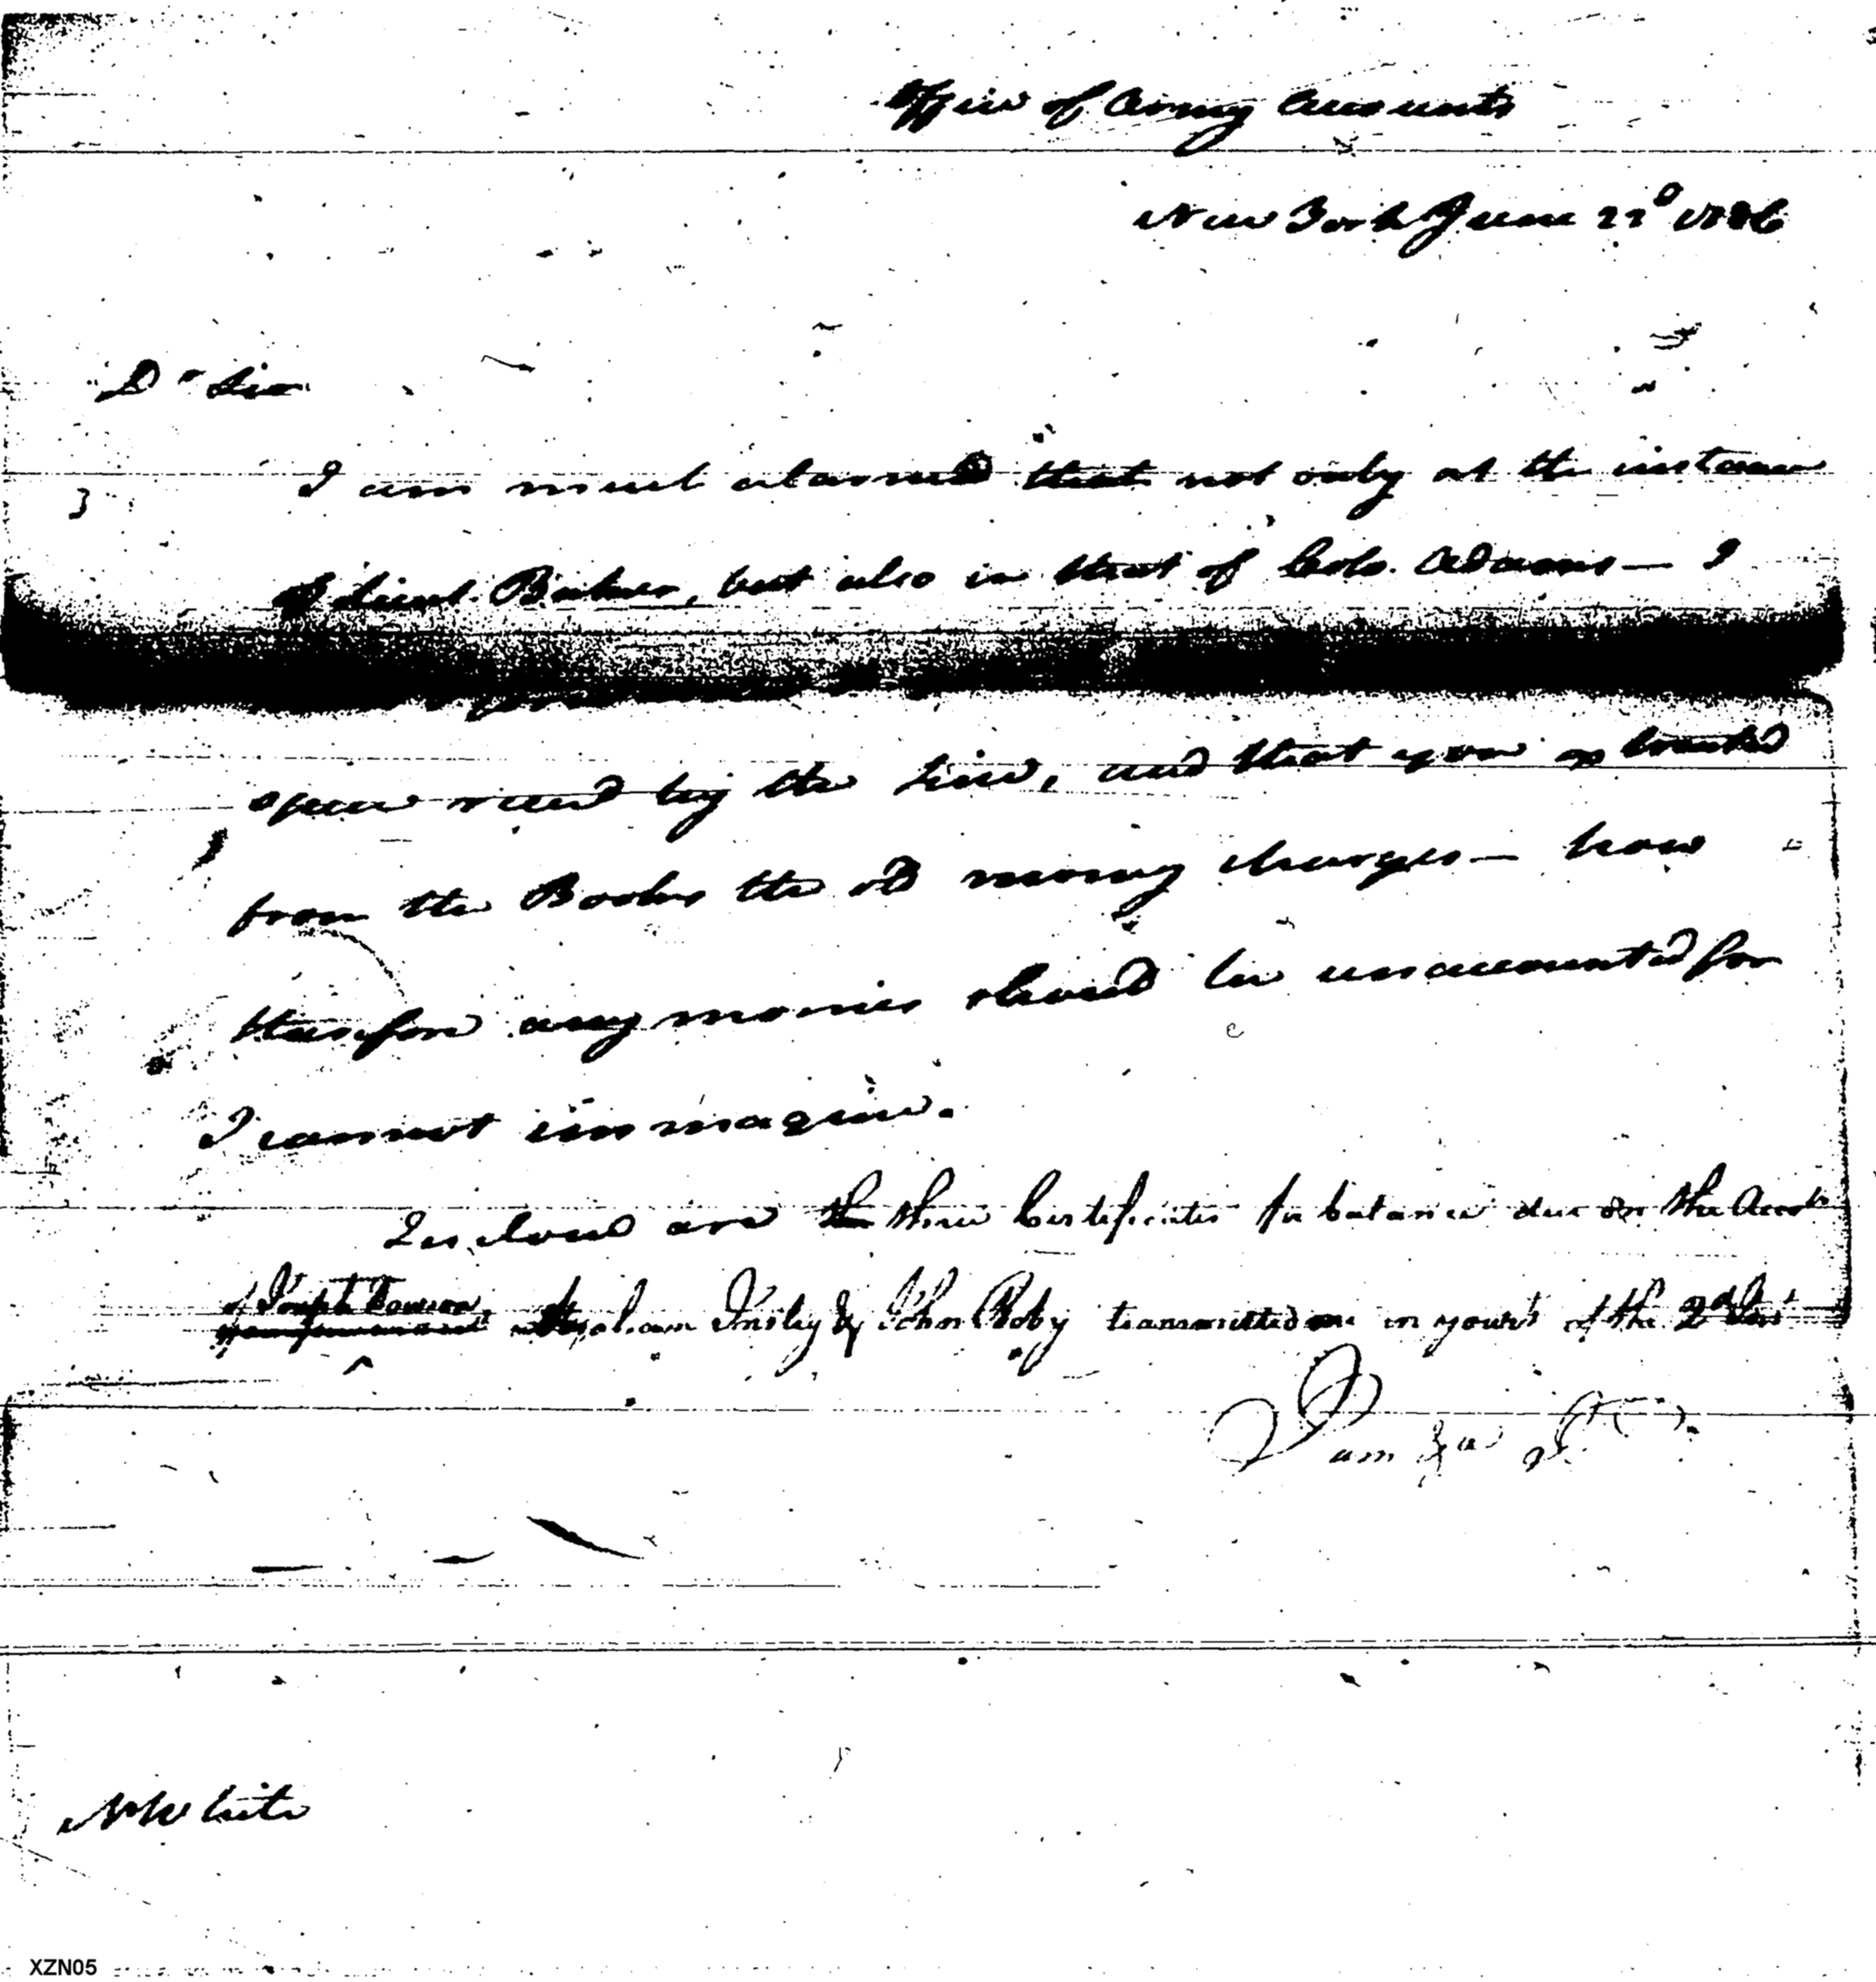 Office of Army Accounts
New York June 22d 1786
Dr Sir
I am much alarmed that not only at the instance
of Lieut. Baker, but also in that of Colo. Adams — I
specie recd by the Line, and that you extracted
from the Books the old money charges — how
therefore any monies should be unaccounted for
I cannot immagine.
Inclosed are the three Certificates for balance due on the Accots
of Joseph Dawson, Abraham Insley & John Roby transmitted me in yours of the 2d Inst
I am &a
N White
XZN05